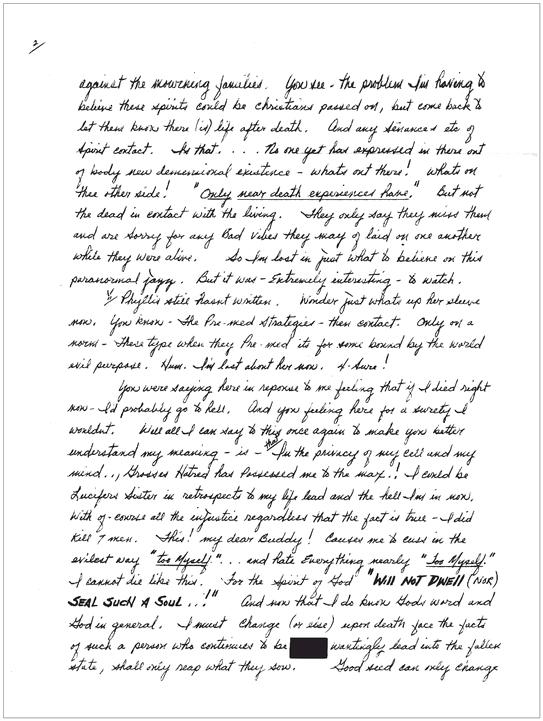 2/
against the mourning families. You see - the problem I'm having to
believe these spirits could be christians passed on, but come back to
let them know there (is) life after death. And any séances etc of
Spirit contact. Is that . . . . No one yet has expressed in there out
of body new demensional existence - whats out there! Whats on
thee other side! "Only near death experiences have." But not
the dead in contact with the living. They only say they miss them
and are sorry for any Bad Vibes they may of laid on one another
while they were alive. So I'm lost in just what to believe on this
paranormal jazz. But it was - Extremely interesting - to watch.
Phyllis still hasnt written. Wonder just whats up her sleeve
now. You know - The Pre-med Strategies - then contact. Only on a
norm - These type when they Pre-med its for some bound by the world
evil purpose. Hum. I'm lost about her now. 4-Sure!
You were saying here in reponse to me feeling that if I died right
now - I'd probably go to hell. And you feeling here for a surety I
wouldnt. Well all I can say to this once again to make you better
understand my meaning - is - In the privacy of my cell and my
mind.., Grosses Hatred has Possessed me to the max..! I could be
Lucifers Sister in retrospects to my life lead and the hell I'm in now.
With of-course all the injustice regardless that the fact is true - I did
kill 7 men. This! my dear Buddy! Causes me to cuss in the
evilest way "too Myself." . . . and hate Everything nearly "Too Myself."
I cannot die like this. For the Spirit of God "WILL NOT DWELL (NOR)
SEAL SUCH A SOUL...!" And now that I do know Gods word and
God in general. I must change (or else) upon death face the facts
of such a person who continues to be wantingly lead into the fallen
state, shall only reap what they sow. Good seed can only change